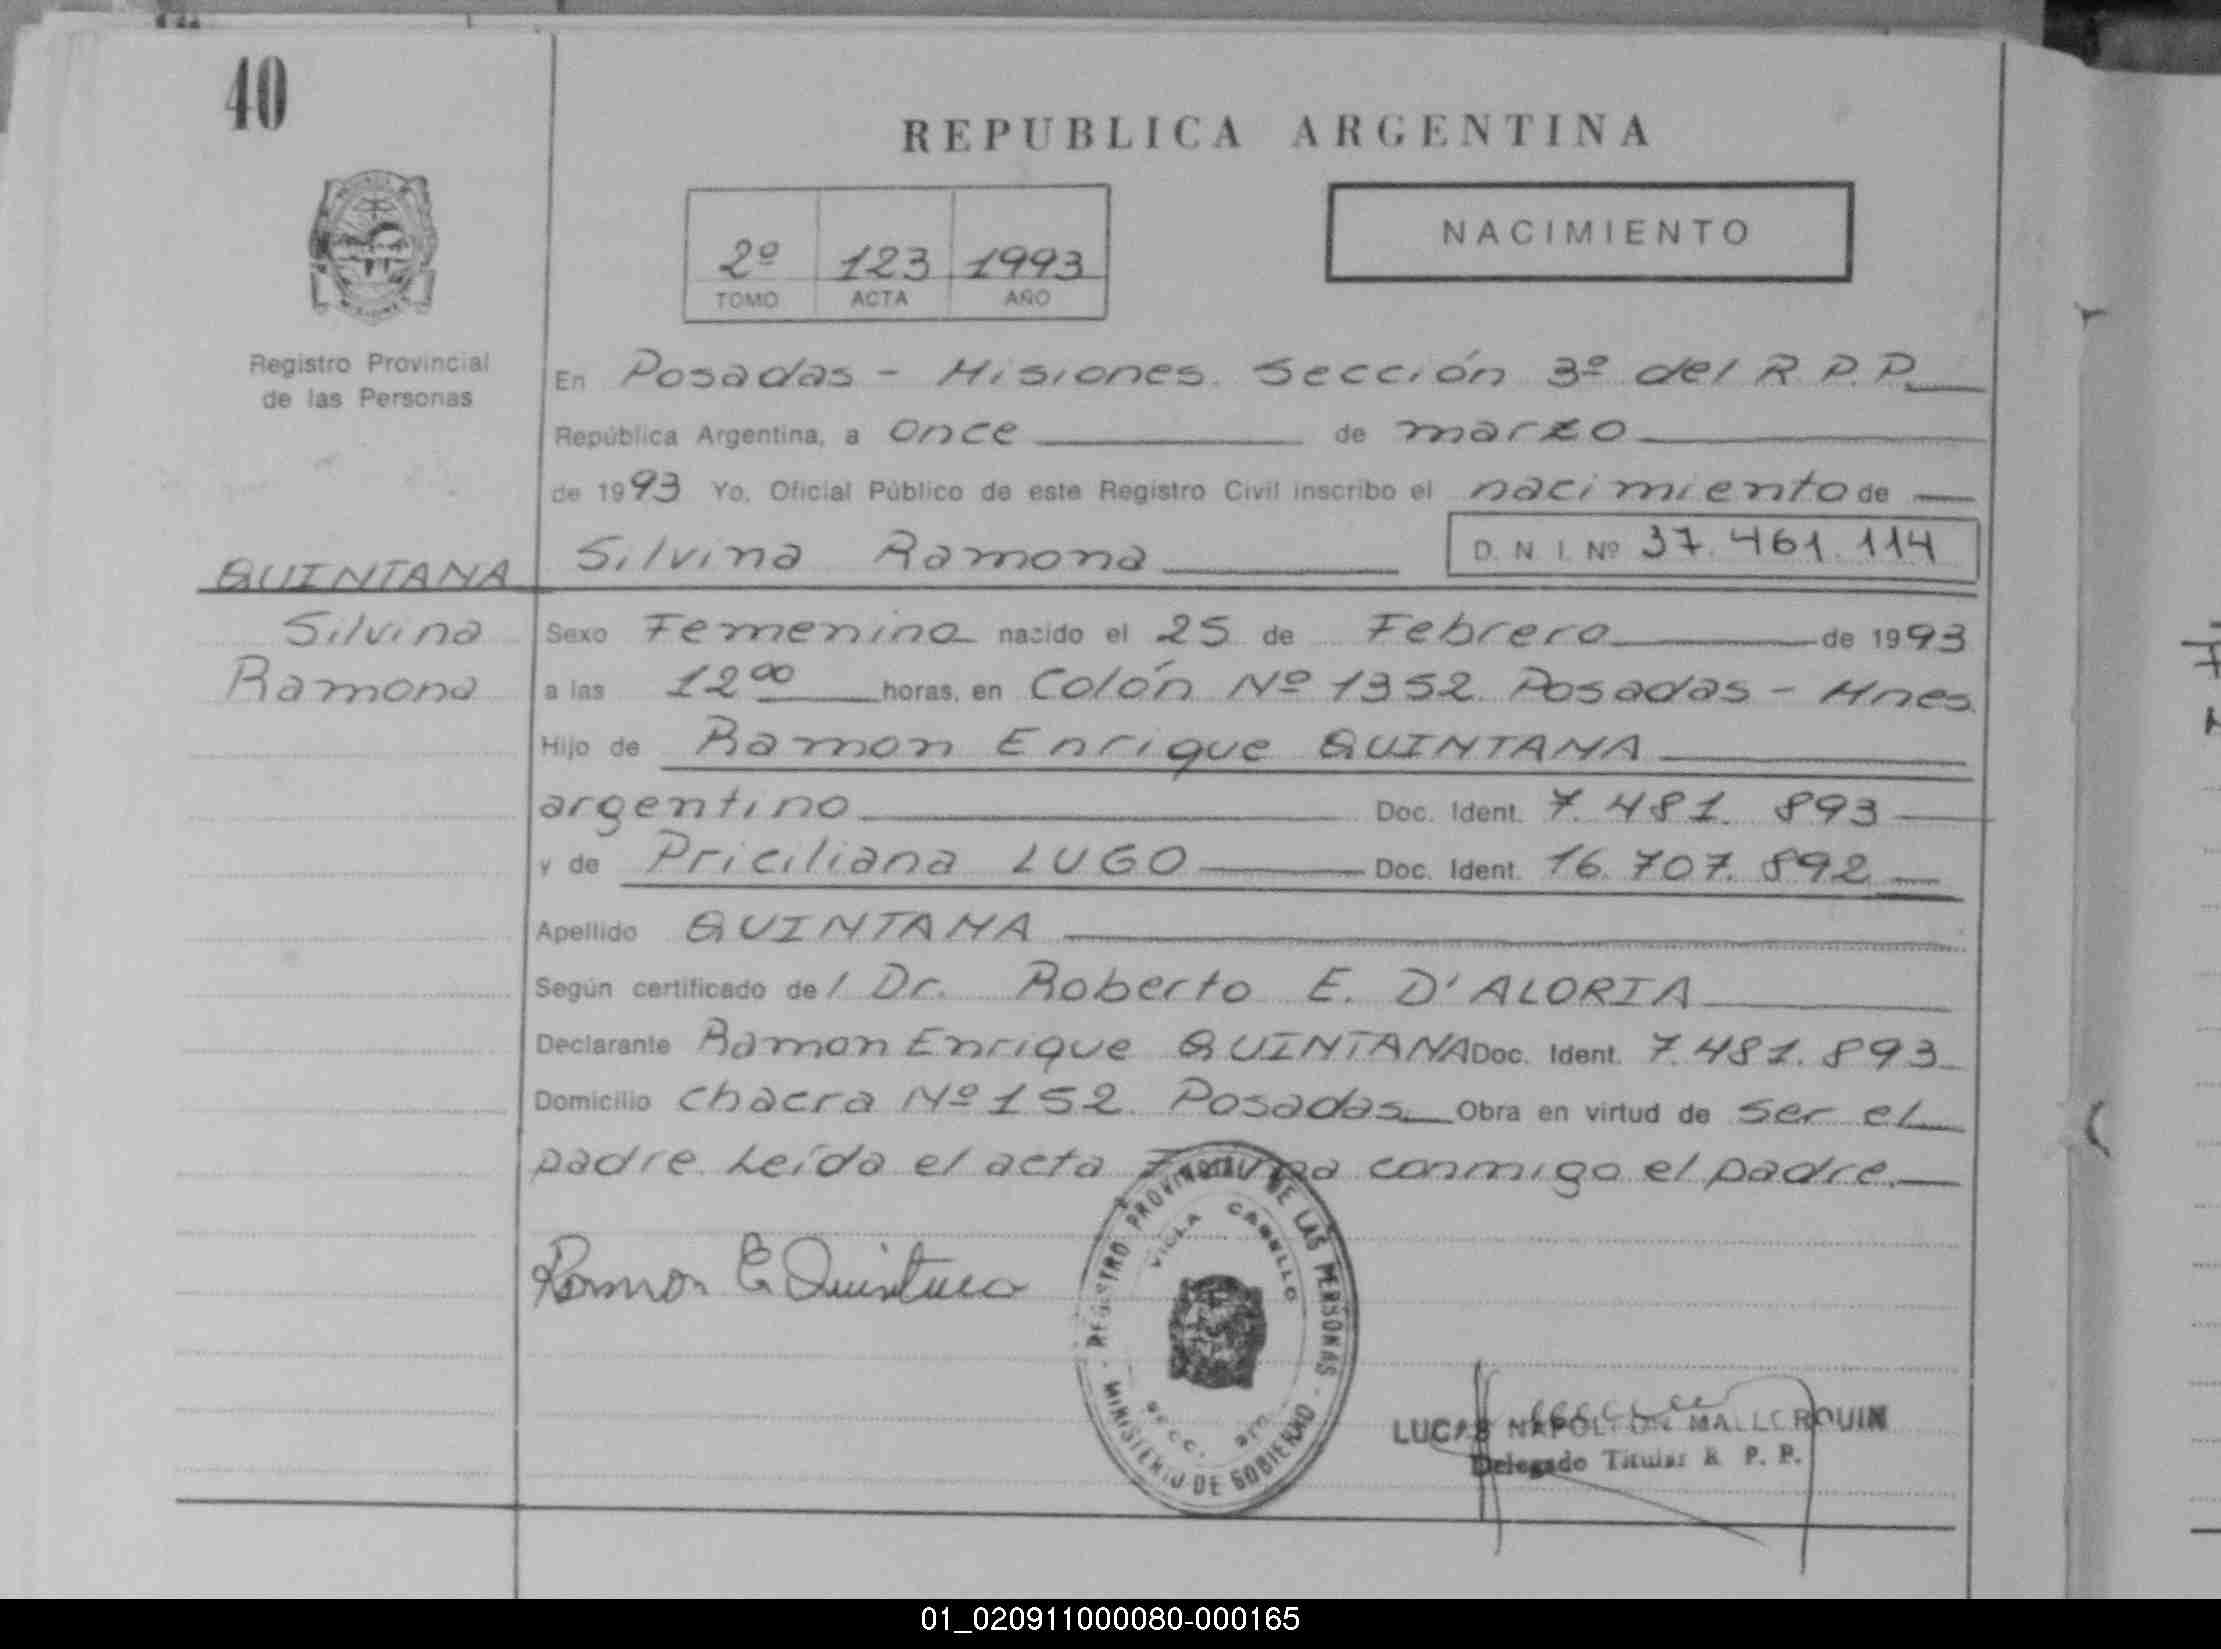 40
REPUBLICA ARGENTINA
2º 123 1993
TOMO ACTA AÑO
NACIMIENTO
Registro Provincial
de las Personas
En Posadas - Misiones. Sección 3º del R.P.P.
República Argentina, a once de marzo
de 1993 Yo, Oficial Público de este Registro Civil inscribo el nacimiento de
Silvina Ramona D. N. I. Nº 37.461.114
QUINTANA
Silvina
Ramona
Sexo Femenino nacido el 25 de Febrero de 1993
a las 12 00 horas, en Colón Nº 1352. Posadas - Mnes.
Hijo de Ramon Enrique QUINTANA
argentino Doc. Ident. 7.481.893
y de Priciliana LUGO Doc. Ident. 16.707.892
Apellido QUINTANA
Según certificado del Dr. Roberto E. D'ALORIA
Declarante Ramon Enrique QUINTANA Doc. Ident. 7.481.893
Domicilio chacra Nº 152. Posadas. Obra en virtud de ser el
padre. Leída el acta Firma conmigo el padre.
Ramon E Quintana
REGISTRO PROVINCIAL DE LAS PERSONAS
VILLA CABELLO
SECC. 3ra
- MINISTERIO DE GOBIERNO -
LUCAS NAPOLEON MALLORQUIN
Delegado Titular R. P. P.
01_020911000080-000165